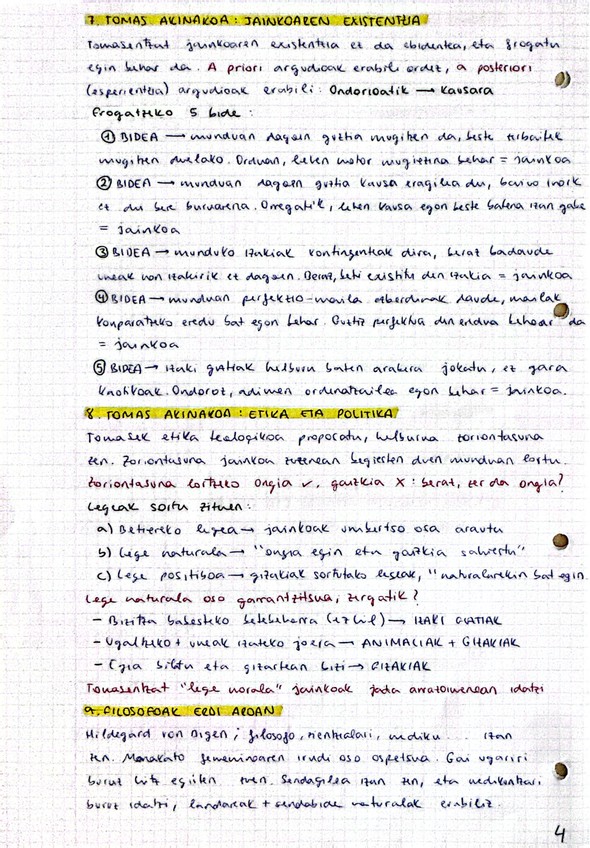 7. TOMAS AKINAKOA: JAINKOAREN EXISTENTZIA
Tomasentzat jainkoaren existentzia ez da ebidentea, eta frogatu
egin behar da. A priori argudioak erabili ordez, a posteriori
(esperientzia) argudioak erabili: Ondorioatik → Kausara
Frogatzeko 5 bide:
① BIDEA → munduan dagoen guztia mugitzen da, beste zerbaitek
mugitzen duelako. Orduan, lehen motor mugiezina behar = jainkoa
② BIDEA → munduan dagoen guztia kausa eragilea du, baina inork
ez du bere buruarena. Orregatik, lehen kausa egon beste batena izan gabe
= jainkoa
③ BIDEA → munduko izakiak kontingenteak dira, beraz badaude
uneak non izakirik ez dagoen. Beraz, beti existitu den izakia = jainkoa
④ BIDEA → munduan perfekzio-maila ezberdinak daude, mailak
konparatzeko eredu bat egon behar. Guztiz perfektua den eredua behar da
= jainkoa
⑤ BIDEA → izaki guztiak helburu baten arabera jokatu, ez gara
kaotikoak. Ondoroz, adimen ordenatzailea egon behar = jainkoa.
8. TOMAS AKINAKOA: ETIKA ETA POLITIKA
Tomasek etika teologikoa proposatu, helburua zoriontasuna
zen. Zoriontasuna jainkoa zuzenean begiesten duen munduan lortu.
Zoriontasuna lortzeko Ongia v. gaizkia X: beraz, zer da ongia?
Legeak sortu zituen:
a) Betiereko legea → jainkoak unibertso osa arautu
b) Lege naturala → "ongia egin eta gaizkia saihestu"
c) Lege positiboa → gizakiak sortutako legeak, "naturalarekin bat egin
Lege naturala oso garrantzitsua, zergatik?
- Bizitza babesteko betebeharra (ez hil) → IZAKI GUZTIAK
- Ugaltzeko + uneak izateko joera → ANIMALIAK + GIZAKIAK
- Egia bilatu eta gizartean bizi → GIZAKIAK
Tomasentzat "lege morala" jainkoak jada arrazoimenean idatzi
9. FILOSOFOAK ERDI AROAN
Hildegard von Bigen; filosofo, zientzialari, mediku... izan
zen. Monakato femeninoaren irudi oso ospetsua. Gai ugariri
buruz hitz egiten zuen. Sendagilea izan zen, eta medikuntzari
buruz idatzi, landareak + sendabide naturalak erabiliz.
4